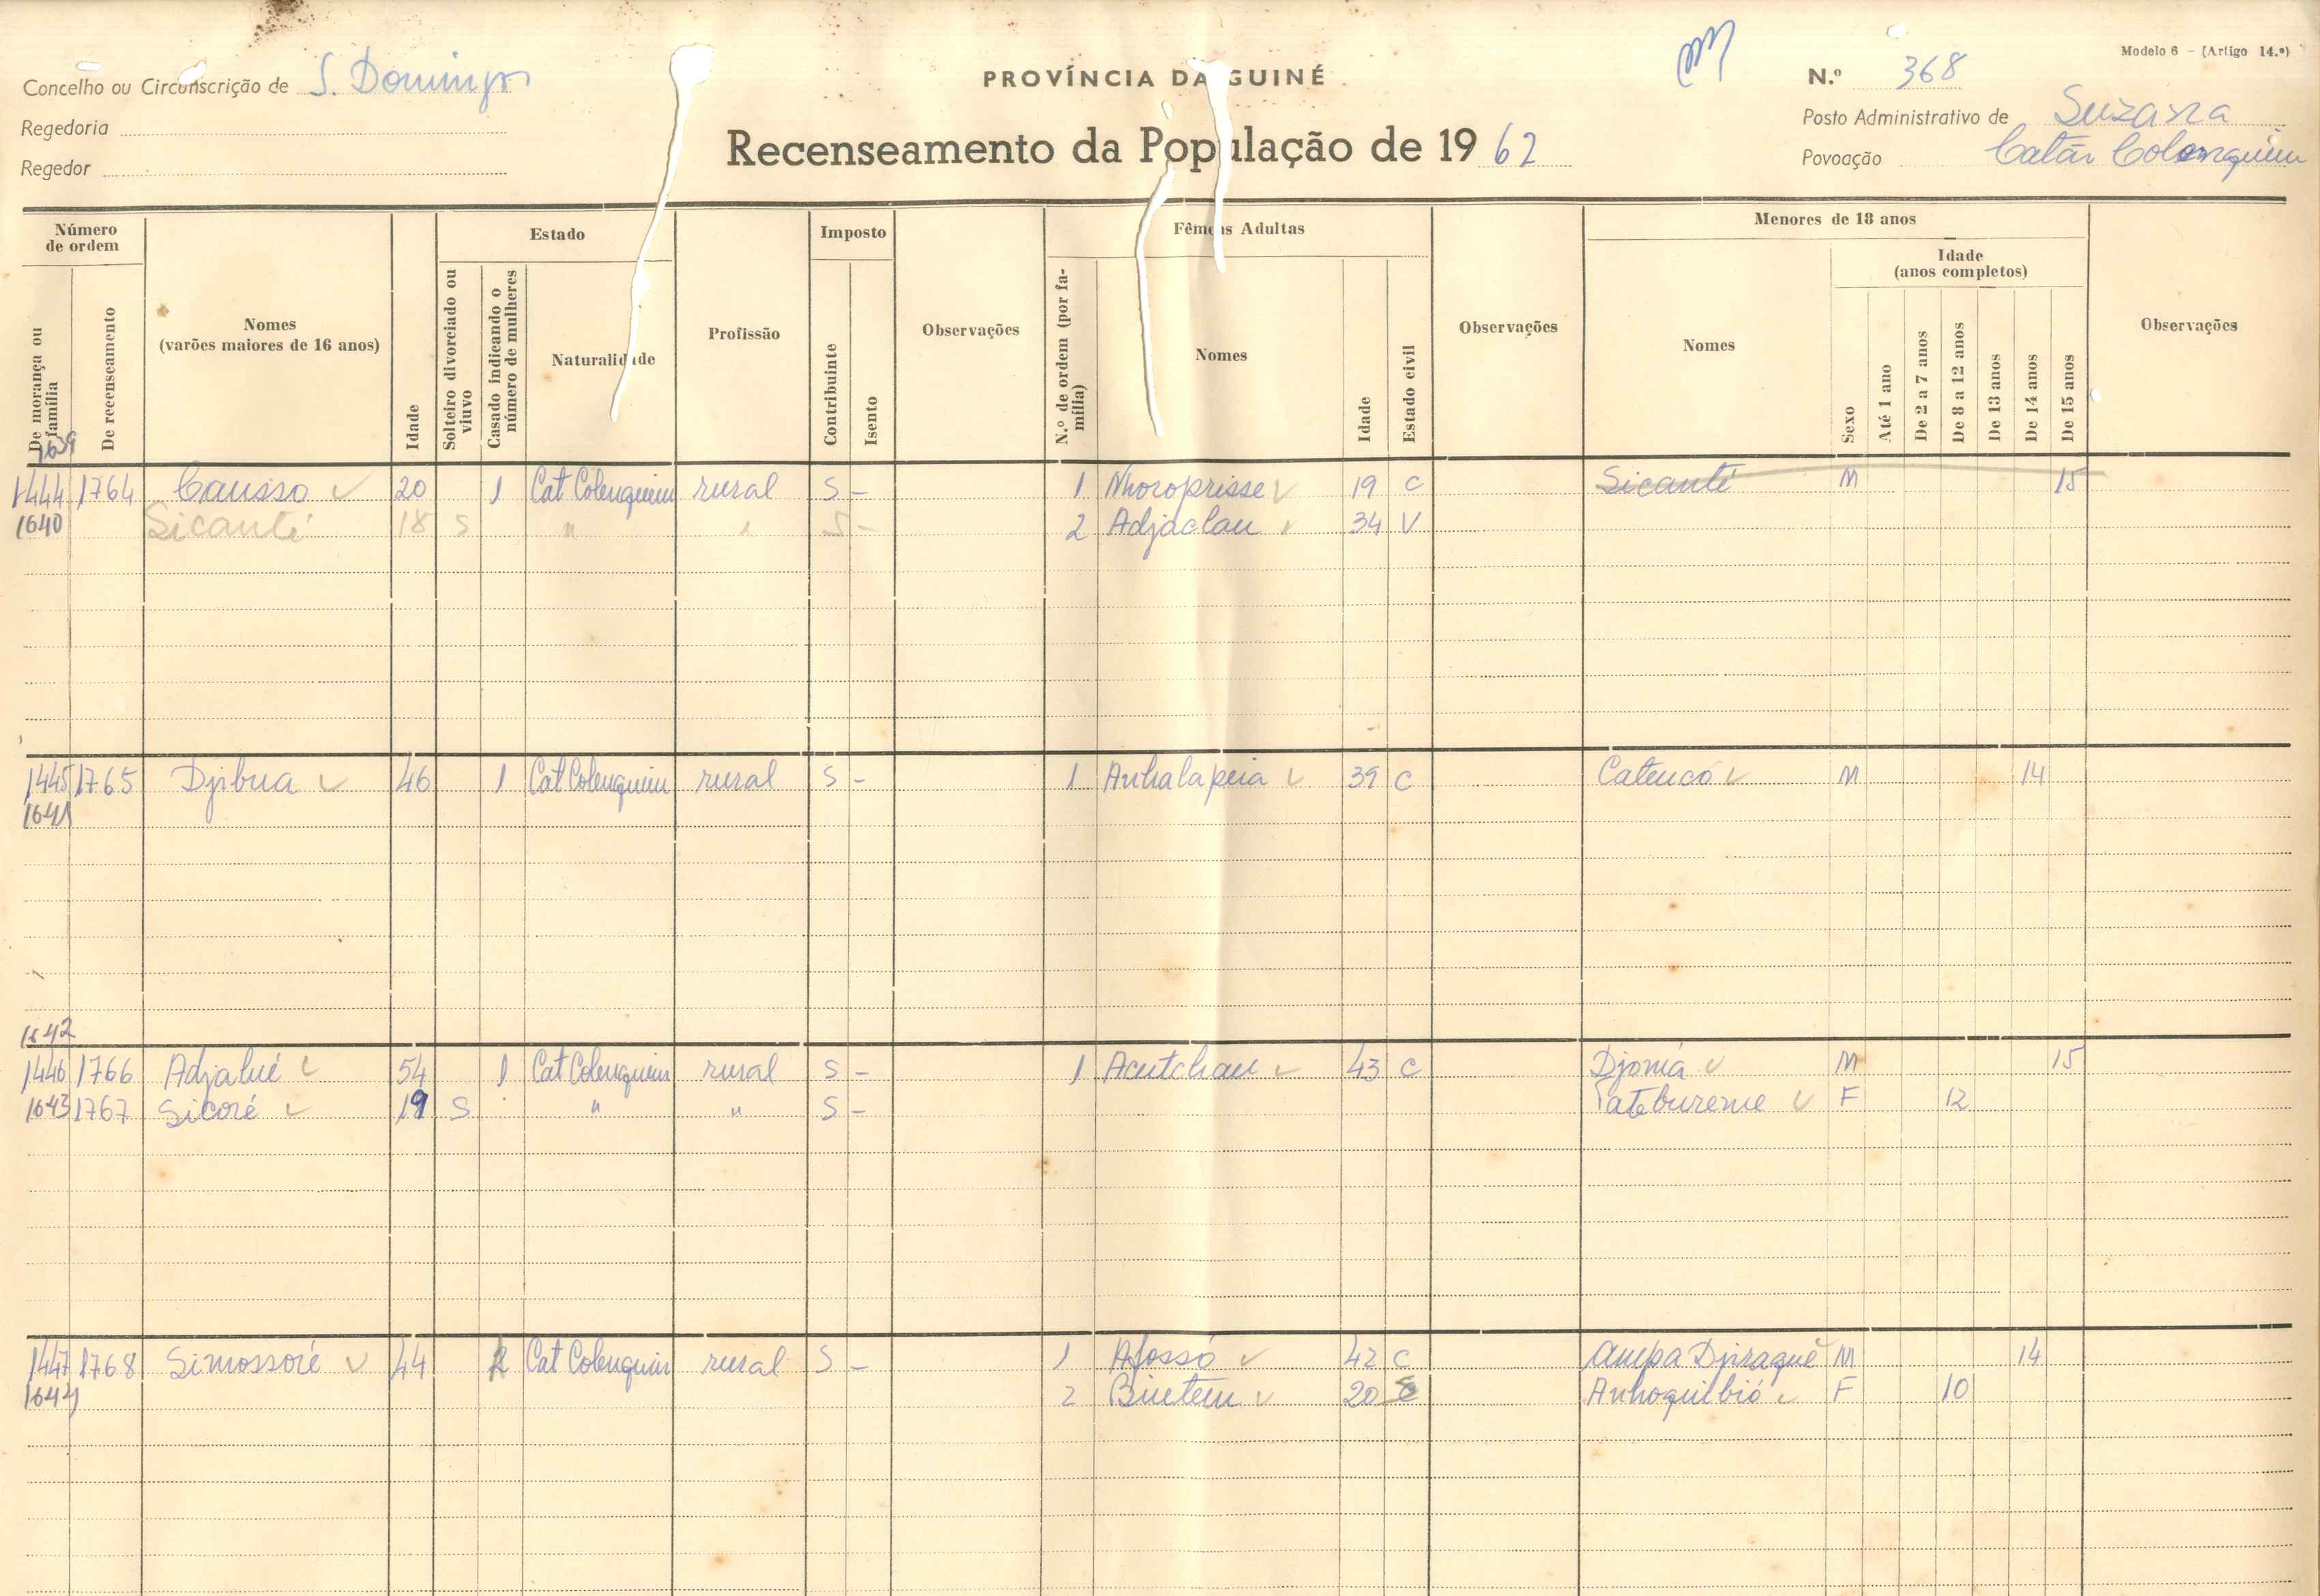 Modelo 6 - (Artigo 14.º)
Concelho ou Circunscrição de S. Domingos
PROVÍNCIA DA GUINÉ
N.º 368
Regedoria
Posto Administrativo de Suzana
Regedor
Recenseamento da População de 1962
Povoação Catão Colenquim
Número de ordem
Estado
Imposto
Fêmeas Adultas
Menores de 18 anos
Idade (anos completos)
De morança ou família
De recenseamento
Nomes (varões maiores de 16 anos)
Idade
Solteiro divorciado ou viuvo
Casado indicando o número de mulheres
Naturalidade
Profissão
Contribuinte
Isento
Observações
N.º de ordem (por família)
Nomes
Idade
Estado civil
Observações
Nomes
Sexo
Até 1 ano
De 2 a 7 anos
De 8 a 12 anos
De 13 anos
De 14 anos
De 15 anos
Observações
1639
1444 1764 Causso 20 1 Cat Colenquim rural S - 1 Nhoroprisse 19 C Sicanté M 15
1640 Sicanté 18 S " " S - 2 Adjaclau 34 V
1445 1765 Djibua 46 1 Cat Colenquim rural S - 1 Anhalapeia 39 C Catencó M 14
1641
1642
1446 1766 Adjalué 54 1 Cat Colenquim rural S - 1 Acutchau 43 C Djoniá M 15
1643 1767 Sicoré 19 S " " S - F 12
1447 1768 Simossoré 44 2 Cat Colenquim rural S - 1 Afossó 42 C Ampa Djiraguê M 14
1644 2 Bintem 20 Anhoquilbió F 10